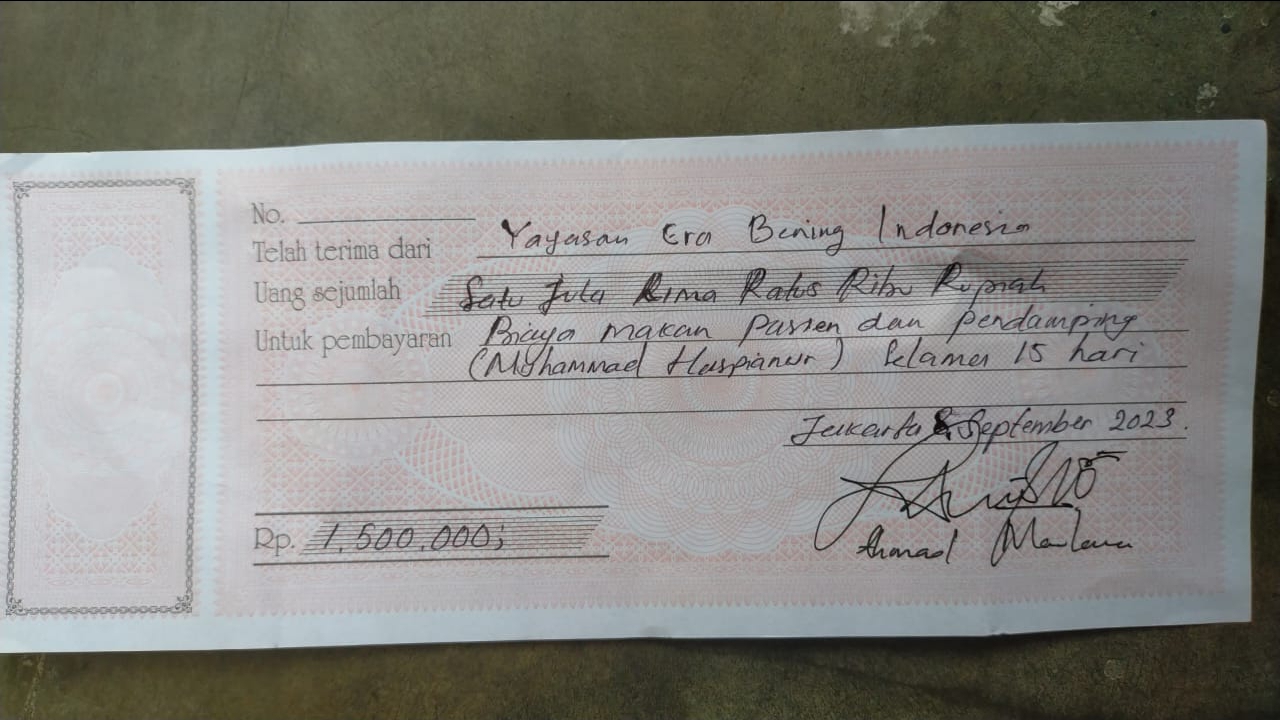 No.
Telah terima dari Yayasan Era Bening Indonesia
Uang sejumlah Satu Juta Lima Ratus Ribu Rupiah
Untuk pembayaran Biaya makan Pasien dan pendamping
(Muhammad Huspianur) Selama 15 hari
Jakarta 8 September 2023.
Rp. 1.500.000;
Ahmad Maulana